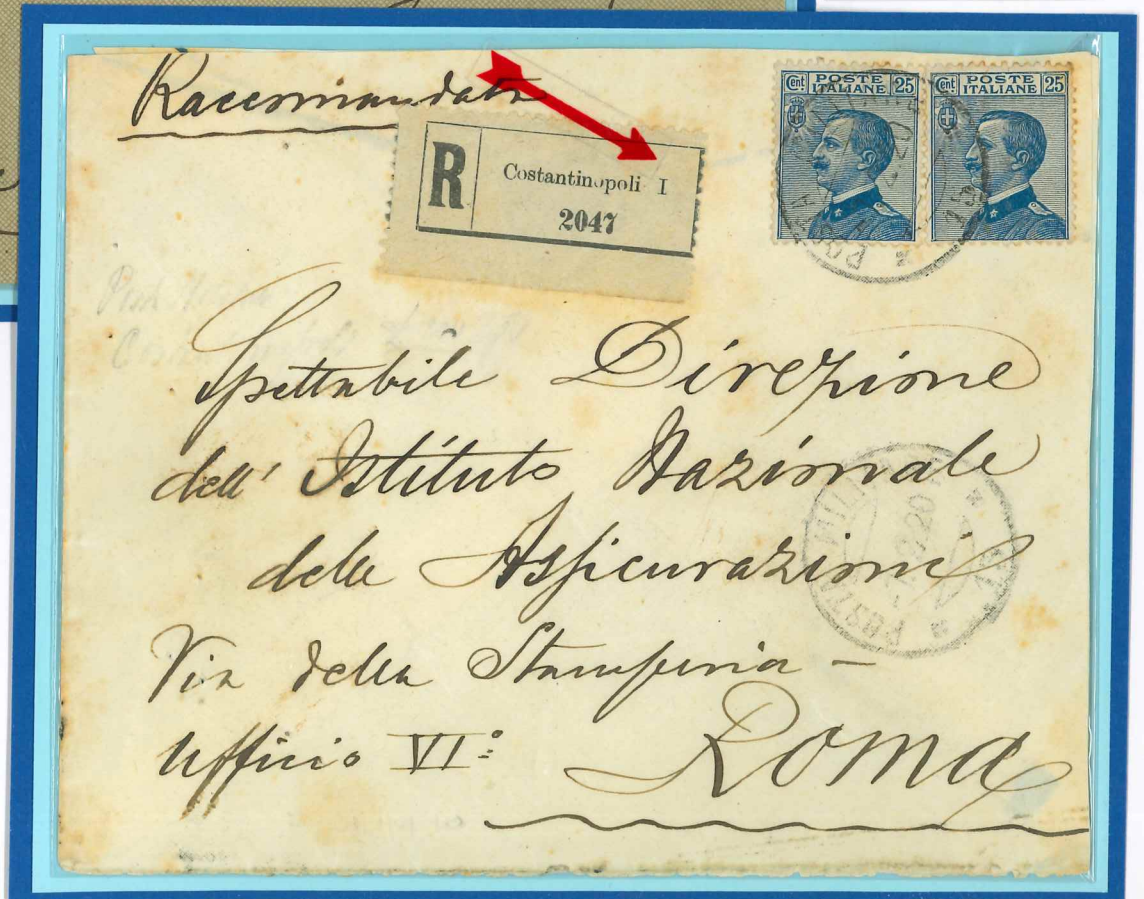 Raccomandata
R
Costantinopoli I
2047
Cent POSTE ITALIANE 25
Cent POSTE ITALIANE 25
Spettabile Direzione
dell' Istituto Nazionale
delle Assicurazioni
Via della Stamperia –
Ufficio VIº
Roma
POSTA MILI
2/20
15